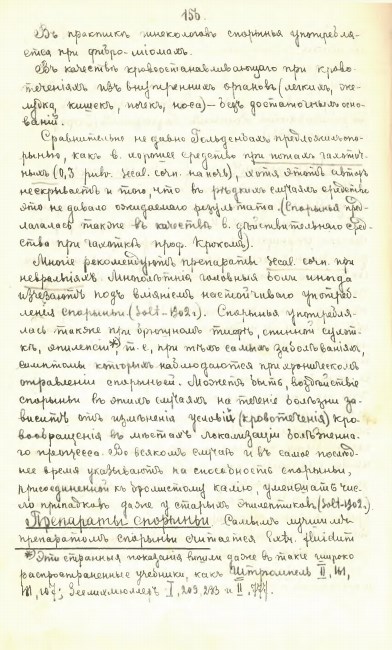 155.
Въ практикѣ гинекологовъ спорынья употребля-
ется при фибро-міомахъ.
Въ качествѣ кровоостанавливающаго при крово-
теченіяхъ изъ внутреннихъ органовъ (легкихъ, же-
лудка, кишекъ, почекъ, носа) – безъ достаточныхъ осно-
ваній.
Сравнительно не давно Гольдендахъ предложилъ спо-
рынью, какъ в. хорошее средство при потахъ чахоточ-
ныхъ (0,3 pulv. secal. corn. на ночь), хотя этотъ авторъ
нескрываетъ и того, что въ рѣдкихъ случаяхъ средство
это не давало ожидаемаго результата. (Спорынья пред-
лагалась также въ качествѣ в. дѣйствительнаго сред-
ства при чахоткѣ проф.
Многіе рекомендуютъ препараты secal. corn. при
невралгіяхъ. Многолѣтнія головныя боли иногда
изчезаютъ подъ вліяніемъ настойчиваго употреб-
ленія спорыньи (Solt-1902 г.). Спорынья употребля-
лась также при брюшномъ тифѣ, спинной сухот-
кѣ, эпилепсіи*), т.-е. при тѣхъ самыхъ заболѣваніяхъ,
симптомы которыхъ наблюдаются при хроническомъ
отравленіи спорыньей. Можетъ быть, воздѣйствіе
спорыньи въ этихъ случаяхъ на теченіе болѣзни за-
виситъ отъ измѣненія условій (кровотеченія) кро-
вообращенія въ мѣстахъ локализаціи болѣзненна-
го процесса. Во всякомъ случаѣ и въ самое послѣд-
нее время указываютъ на способность спорыньи,
присоединенной къ бромистому калію, уменьшать чис-
ло припадковъ даже у старыхъ эпилептиковъ (Solt-1902.)
Препараты спорыньи. Самымъ лучшимъ
препаратомъ спорыньи считается Extr. fluidum
*) Эти странныя показанія вошли даже въ такіе широко
распространенные учебники, какъ Штрюмпель II, 141,
167; Зеелихмюллеръ I, 209, 293 и II,